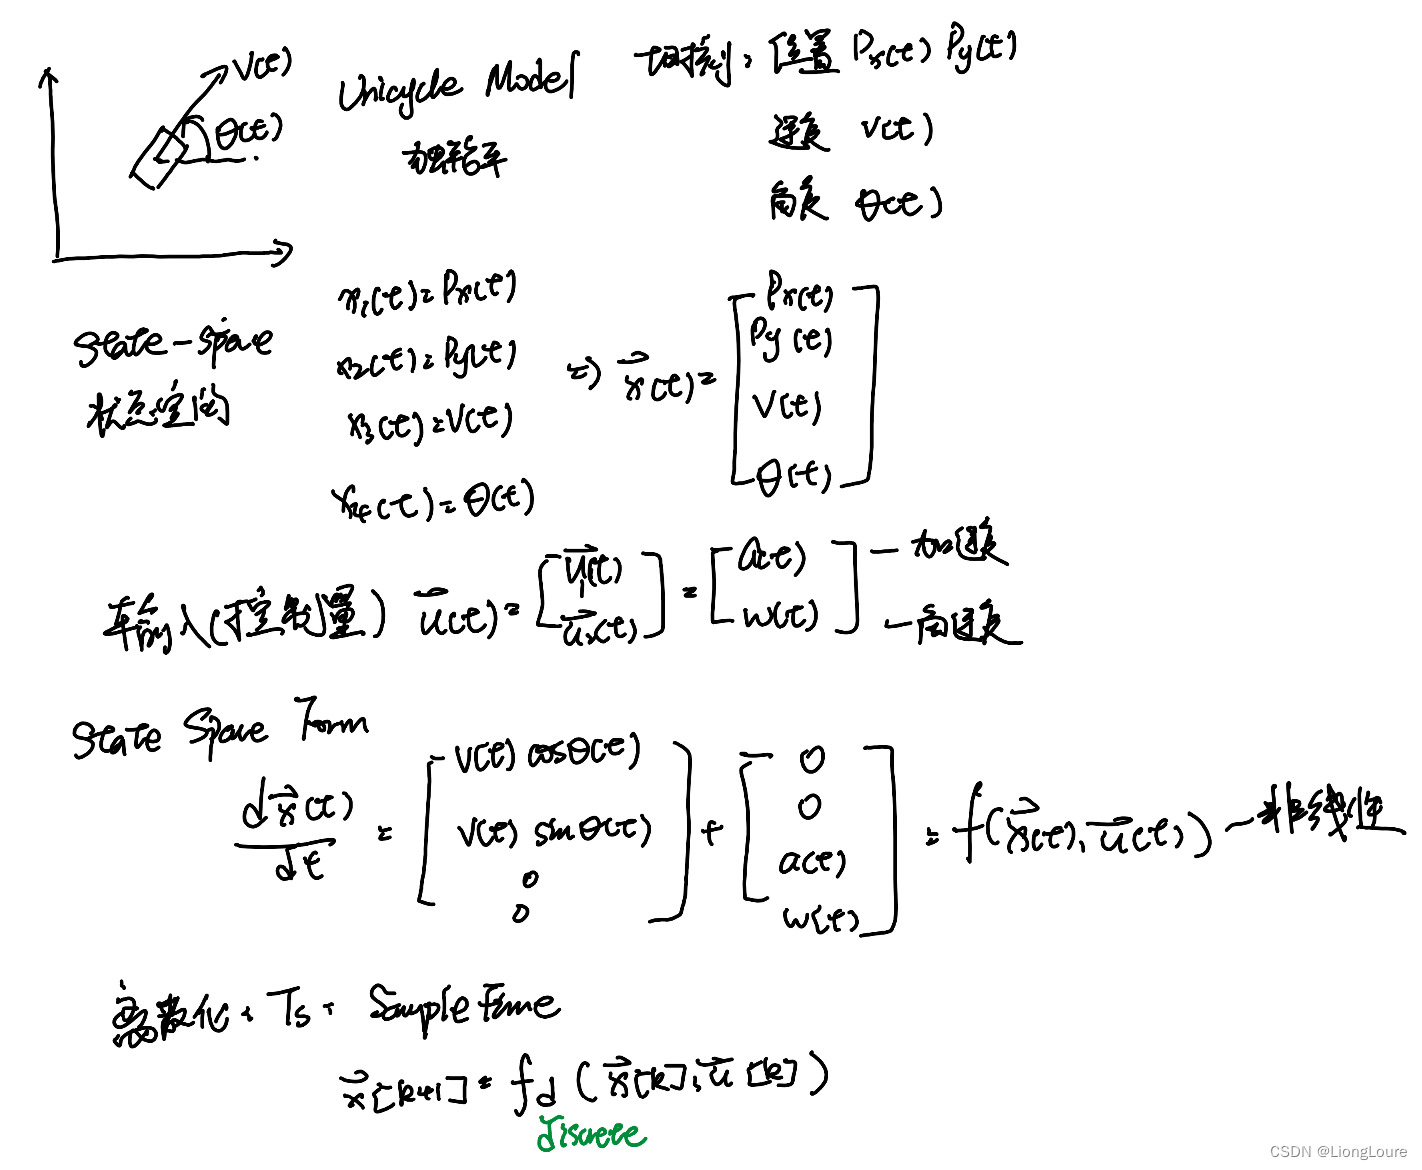 V(t)
θ(t)
Unicycle Model
独轮车
t时刻: 位置 Px(t) Py(t)
速度 V(t)
角度 θ(t)
State-space
状态空间
x₁(t)=Px(t)
x₂(t)=Py(t)
x₃(t)=V(t)
x₄(t)=θ(t)
⇒ x⃗(t)= [Px(t) Py(t) V(t) θ(t)]
车输入(控制量) u⃗(t)= [u⃗₁(t) u⃗₂(t)] = [a(t) w(t)]
— 加速度
— 角速度
State Space Form
dx⃗(t)/dt = [V(t) cosθ(t) V(t) sinθ(t) 0 0] + [0 0 a(t) w(t)] = f(x⃗(t), u⃗(t)) — 非线性
离散化: Ts: Sample Time
x⃗[k+1] = fd (x⃗[k], u⃗[k])
discrete
CSDN @LiongLoure